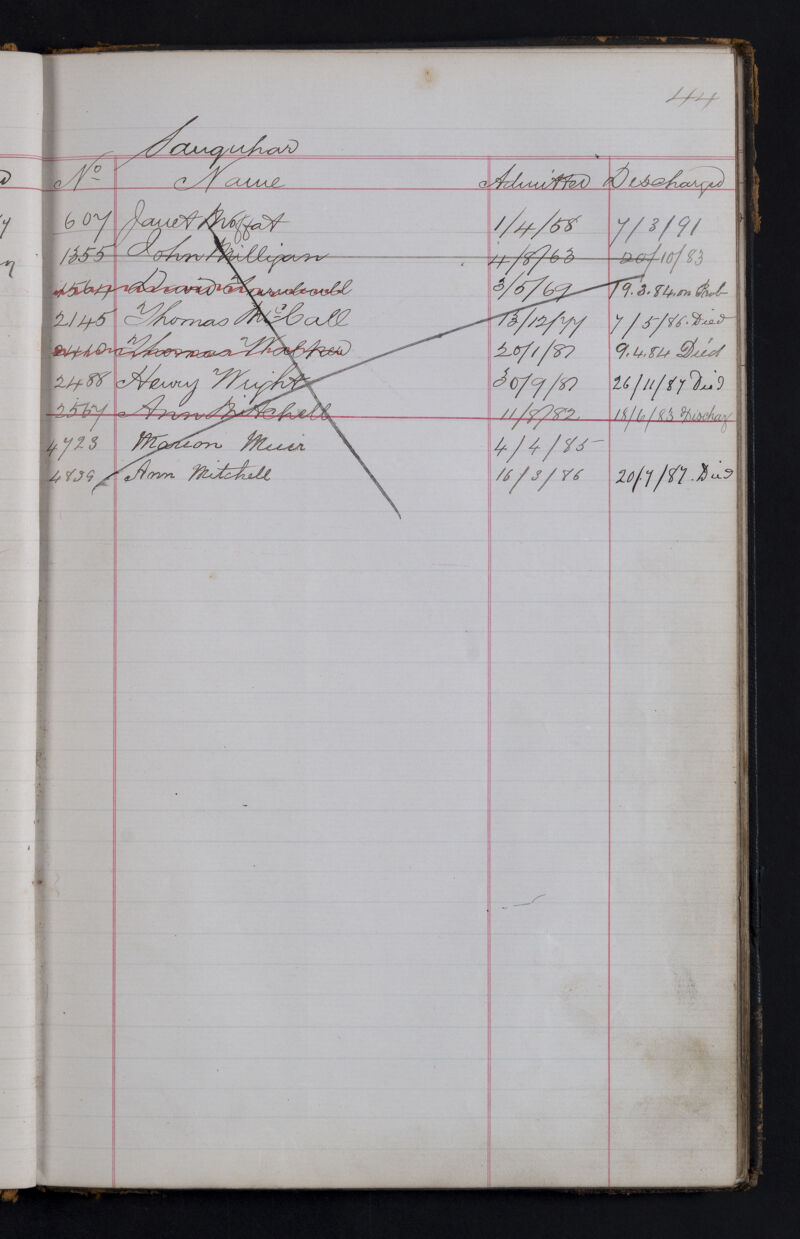 44
Sanquhar
No Name Admitted Discharged
607 Janet Moffat 1/4/58 7/3/91
1355 John Milligan 4/8/63 20/10/83
1564 3/5/69 19.3.84 on Prob
2145 Thomas McCall 13/12/77 7/5/86. Died
2410 Thomas Walker 20/1/81 9.4.84 Died
2488 Henry Wright 30/9/81 26/11/87 Died
2567 Ann Mitchell 11/8/82 18/6/83 Dischag
4723 Marion Muir 4/4/85
4839 Ann Mitchell 16/3/86 20/7/87. Died